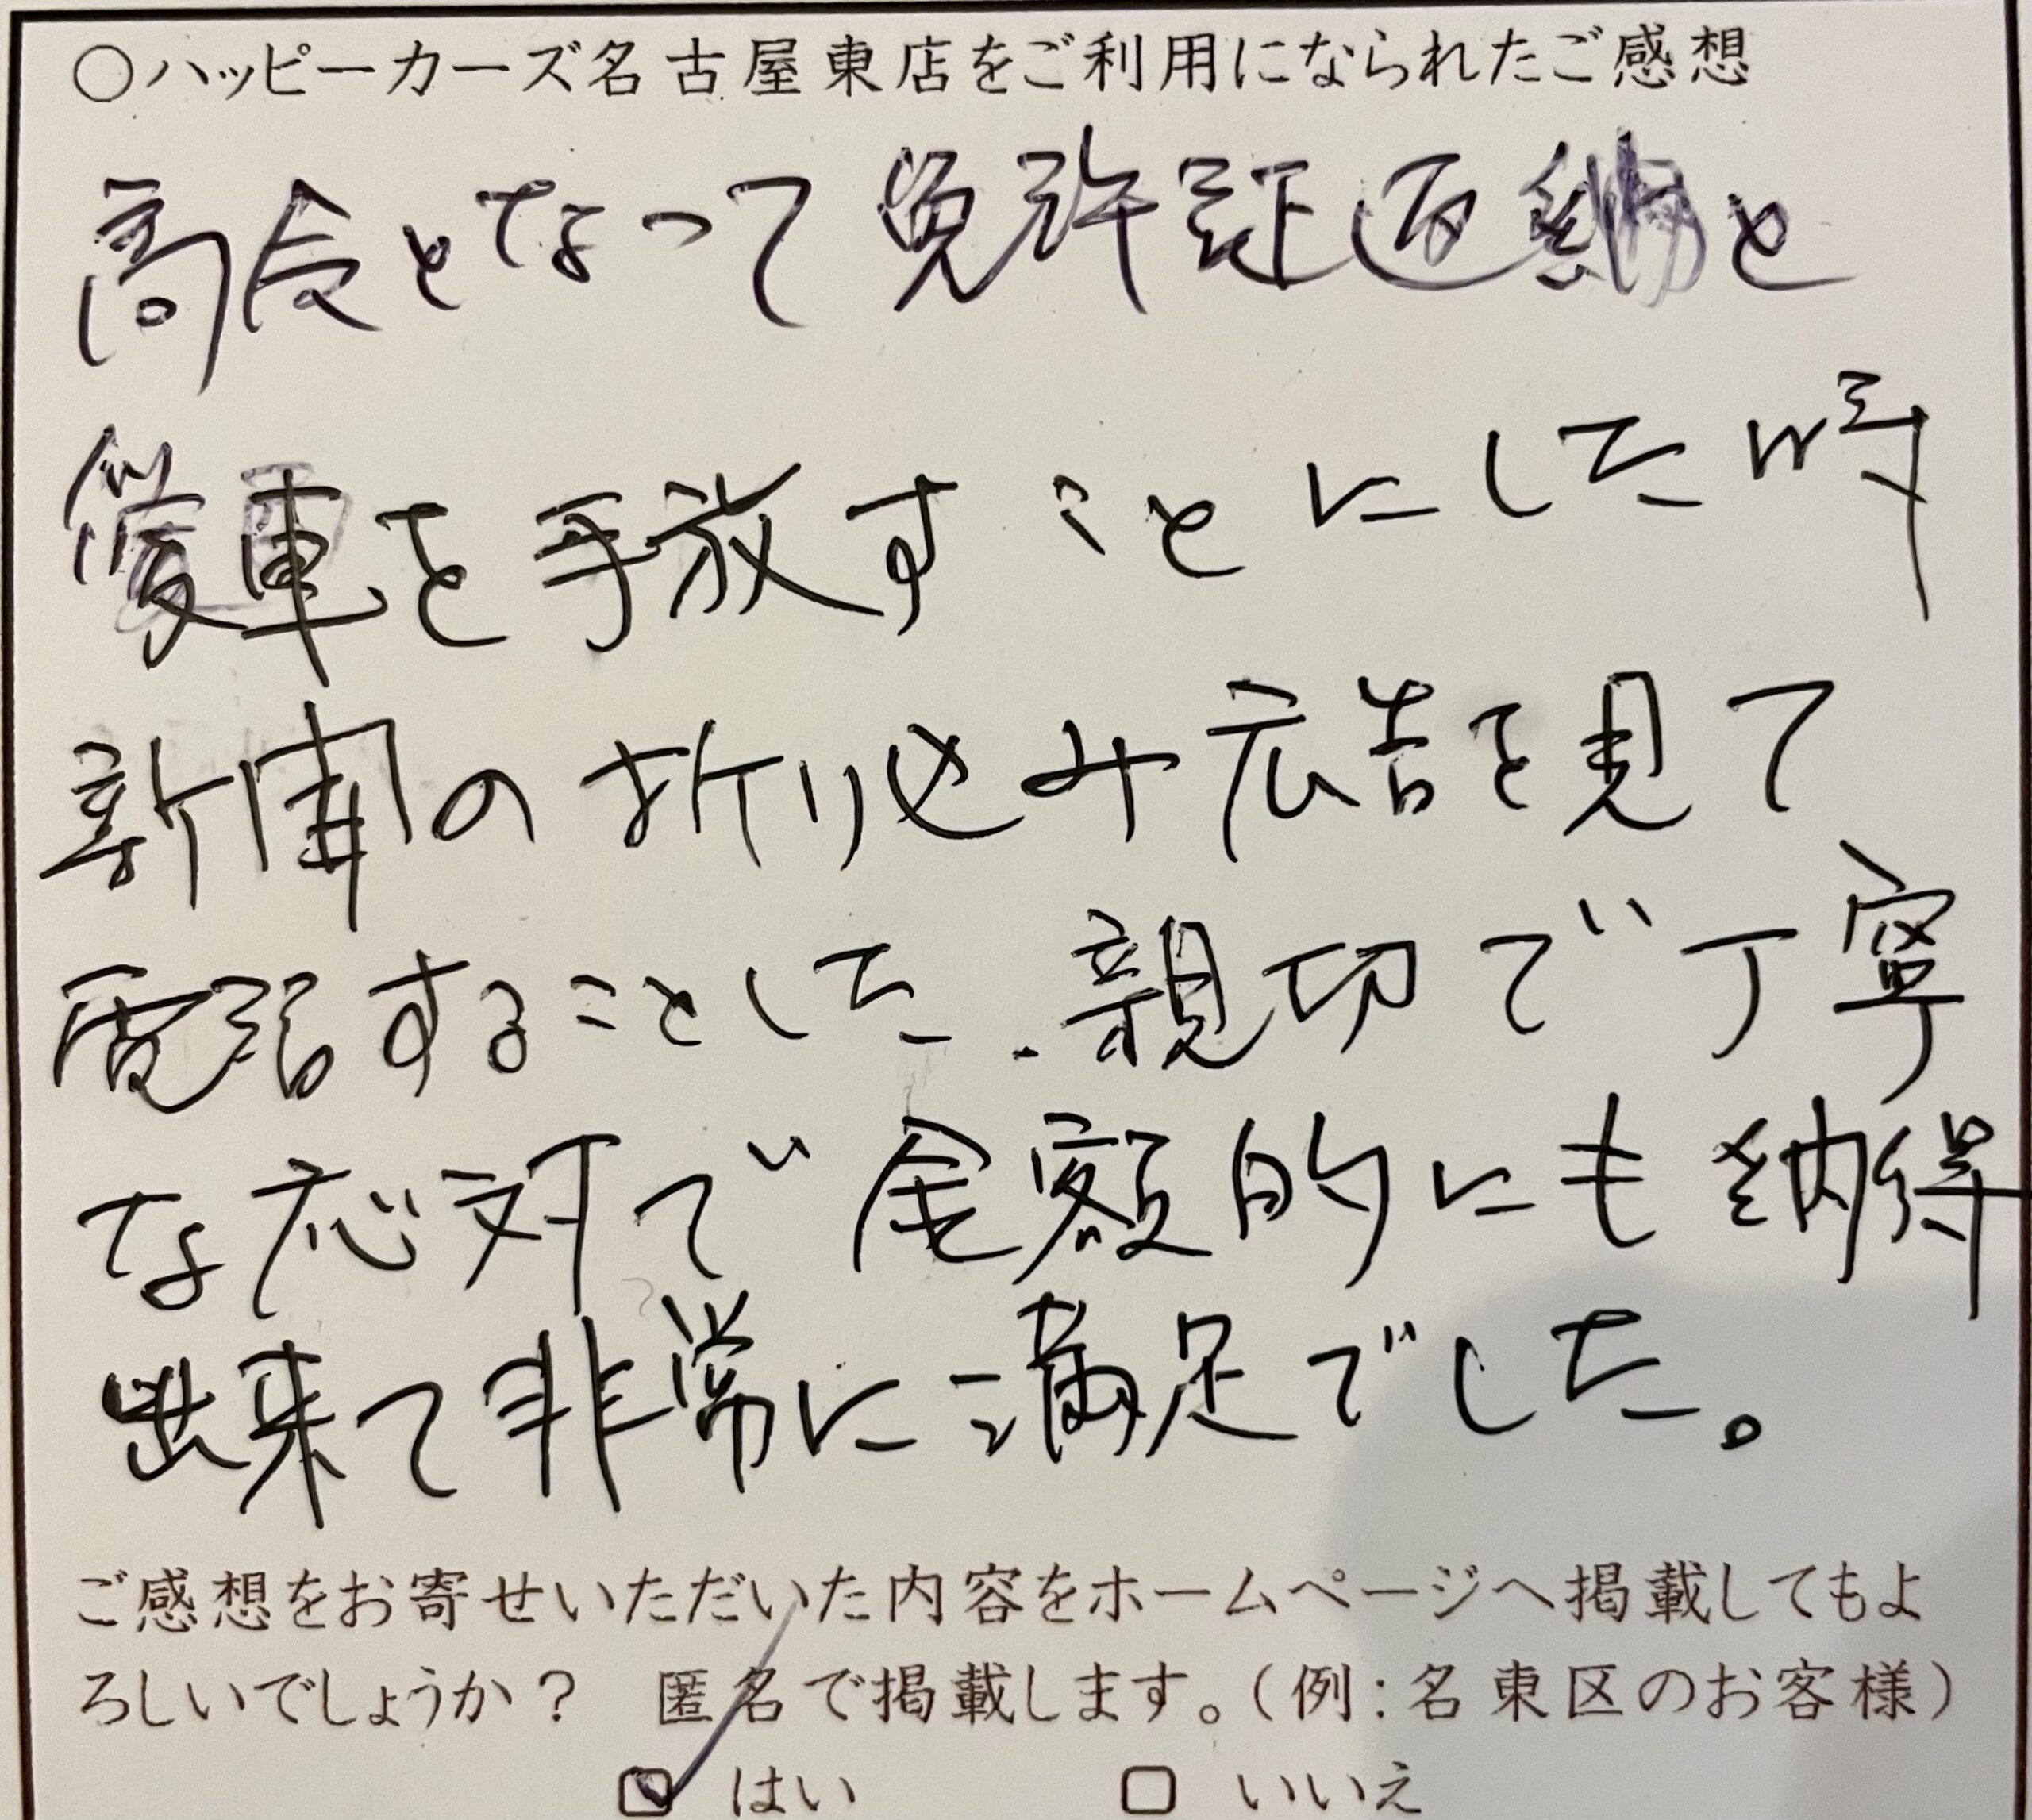 ○ハッピーカーズ名古屋東店をご利用になられたご感想
高令となって免許証返納と
愛車を手放すことにした時
新聞の折り込み広告を見て、
電話することした.親切で丁寧
な応対で金額的にも納得
出来て非常に満足でした。
ご感想をお寄せいただいた内容をホームページへ掲載してもよ
ろしいでしょうか？ 匿名で掲載します。（例：名東区のお客様）
☑ はい □ いいえ